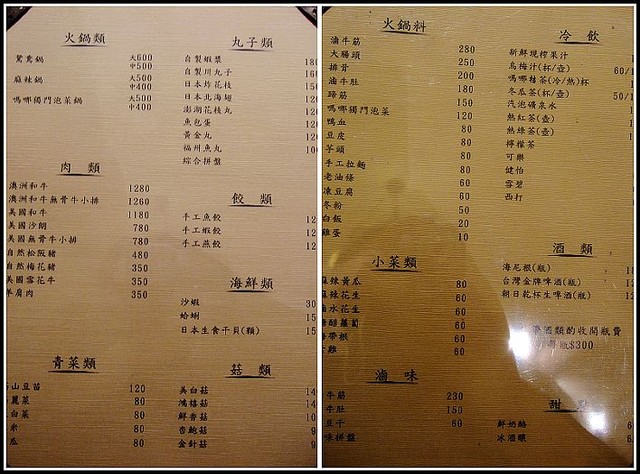 火鍋類
鴛鴦鍋 大600
中500
麻辣鍋 大500
中400
嗎哪獨門泡菜鍋 大500
中400
肉類
澳洲和牛 1280
澳洲和牛無骨牛小排 1260
美國和牛 1180
美國沙朗 780
美國無骨牛小排 780
自然松阪豬 480
自然梅花豬 350
美國雪花牛 350
羊肩肉 350
青菜類
山豆苗 120
麗菜 80
白菜 80
80
瓜 80
丸子類
自製蝦漿
自製川丸子
日本炸花枝
日本北海翅
澎湖花枝丸
魚包蛋
黃金丸
福州魚丸
綜合拼盤
餃類
手工魚餃
手工蝦餃
手工燕餃
海鮮類
沙蝦
蛤蜊
日本生食干貝(顆)
菇類
美白菇
鴻禧菇
鮮香菇
杏鮑菇
金針菇
火鍋料
滷牛筋 280
大腸頭 250
排骨 200
滷牛肚 200
蹄筋 180
嗎哪獨門泡菜 150
鴨血 120
豆皮 80
芋頭 80
手工拉麵 80
老油條 60
凍豆腐 60
冬粉 50
白飯 20
雞蛋 10
小菜類
麻辣黃瓜 80
麻辣花生 60
滷水花生 60
醋蘿蔔 60
海帶根 60
60
滷味
牛筋 230
牛肚 150
豆干 60
滷味拼盤
冷飲
新鮮現榨果汁
烏梅汁(杯/壺) 60/
嗎哪桔茶(冷/熱)杯
冬瓜茶(杯/壺) 50/
汽泡礦泉水
熱紅茶(壺)
熱綠茶(壺)
檸檬茶
可樂
健怡
雪碧
西打
酒類
海尼根(瓶)
台灣金牌啤酒(瓶)
朝日乾杯生啤酒(瓶)
酒類酌收開瓶費
瓶$300
甜點
鮮奶酪
冰酒釀